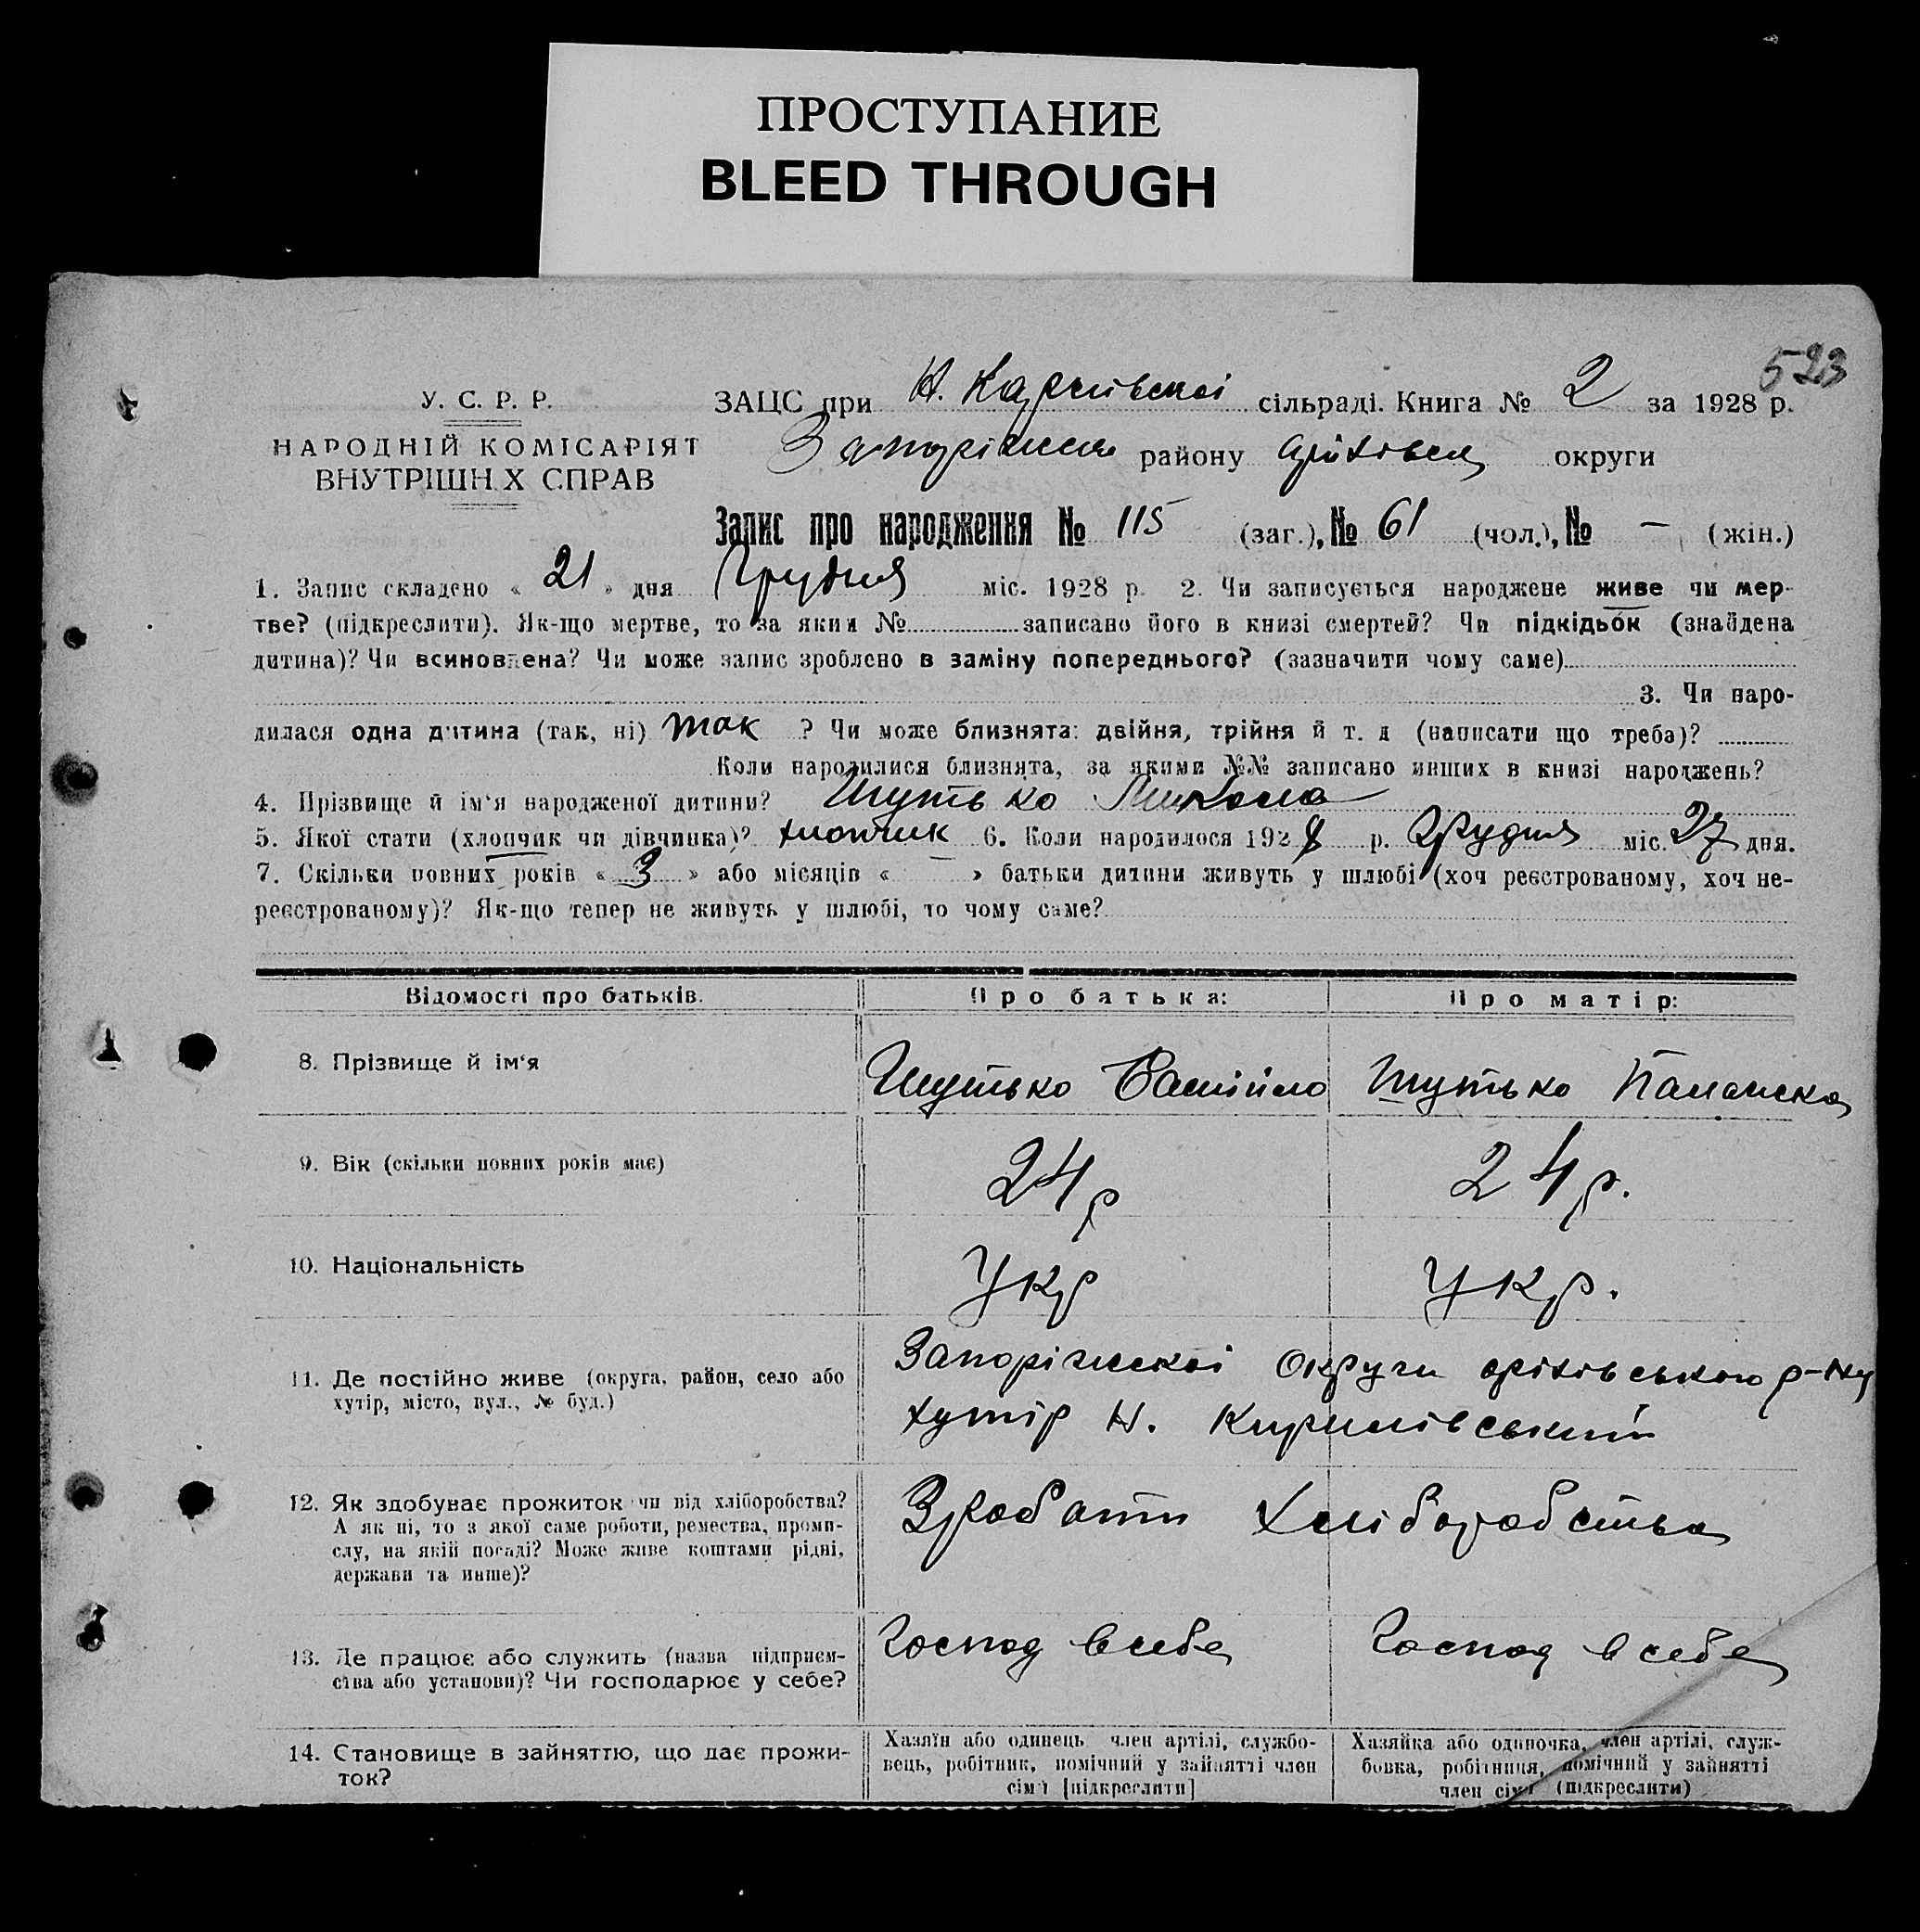 ПРОСТУПАНИЕ
BLEED THROUGH
523
У. С. Р. Р.
НАРОДНІЙ КОМІСАРІЯТ
ВНУТРІШН Х СПРАВ
ЗАЦС при Н. сільраді. Книга № 2 за 1928 р.
району округи
Запис про народження № 115 (заг.), № 61 (чол.), № – (жін.)
1. Запис складено « 21 » дня Грудня міс. 1928 р. 2. Чи записується народжене живе чи мер-
тве? (підкреслити). Як-що мертве, то за яким № записано його в книзі смертей? Чи підкідьок (знайдена
дитина)? Чи всиновлена? Чи може запис зроблено в заміну попереднього? (зазначити чому саме)
3. Чи наро-
дилася одна дитина (так, ні) так ? Чи може близнята: двійня, трійня й т. д (написати що треба)?
Коли народилися близнята, за якими №№ записано инших в книзі народжень?
4. Прізвище й ім'я народженої дитини? Шутько Микола
5. Якої стати (хлопчик чи дівчинка)? хлопчик 6. Коли народилося 1928 р. Грудня міс. 27 дня.
7. Скільки повних років « 3 » або місяців « – » батьки дитини живуть у шлюбі (хоч реєстрованому, хоч не-
реєстрованому)? Як-що тепер не живуть у шлюбі, то чому саме?
Відомості про батьків. Про батька: Про матір:
8. Прізвище й ім'я Шутько Самійло Шутько Палажка
9. Вік (скільки повних років має) 24 р 24 р.
10. Національність Укр Укр.
11. Де постійно живе (округа, район, село або
хутір, місто, вул., № буд.)
Запоріжської Округи оріхівського р-ну
хутір Н. Кирилівський
12. Як здобуває прожиток чи від хліборобства?
А як ні, то з якої саме роботи, ремества, проми-
слу, на якій посаді? Може живе коштами рідні,
держави та инше)?
Зробати Хліборобства
13. Де працює або служить (назва підприєм-
ства або установи)? Чи господарює у себе?
Господ в себе Господ в себе
14. Становище в зайняттю, що дає прожи-
ток?
Хазяїн або одинець член артілі, службо-
вець, робітник, помічний у зайнятті член
сім'ї [підкреслити]
Хазяйка або одиночка, член артілі, служ-
бовка, робітниця, помічний у зайнятті
член сім'ї (підкреслити)